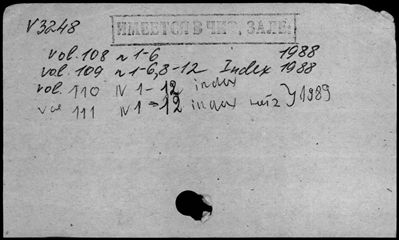 V3248
ИМЕЕТСЯ В ЧИТ. ЗАЛЕ
vol. 108 n 1-6 1988
vol. 109 n 1-6, 8-12 Index 1988
vol. 110 N 1-12 index
vol 111 N 1-12 index } 1989